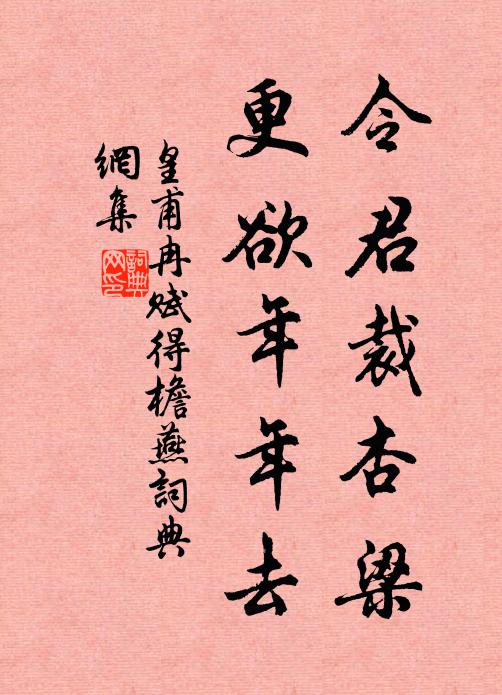 令君裁杏梁
更欲年年去
皇甫冉赋得檐燕詞典
網集
詞典网印